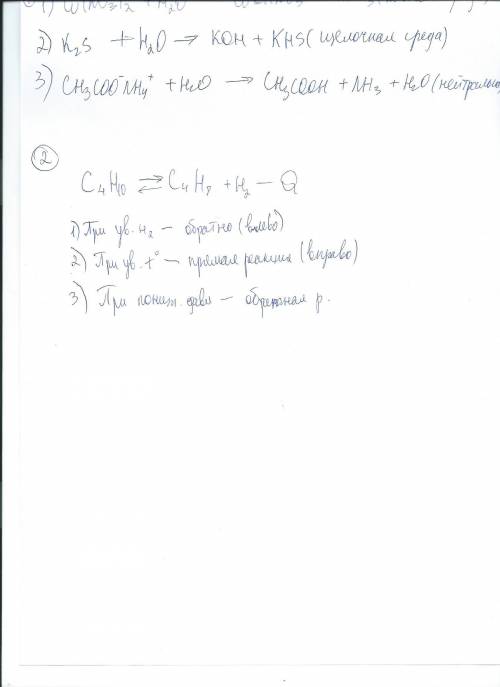 2) K₂S + H₂O → KOH + KHS (щелочная среда)
3) CH₃COO⁻NH₄⁺ + H₂O → CH₃COOH + NH₃ + H₂O (нейтрально
2
C₄H₁₀ ⇌ C₄H₈ + H₂ – Q
1) При ув. H₂ – обратно (влево)
2) При ув. t° – прямая реакция (вправо)
3) При пониж. давл – обратная р.